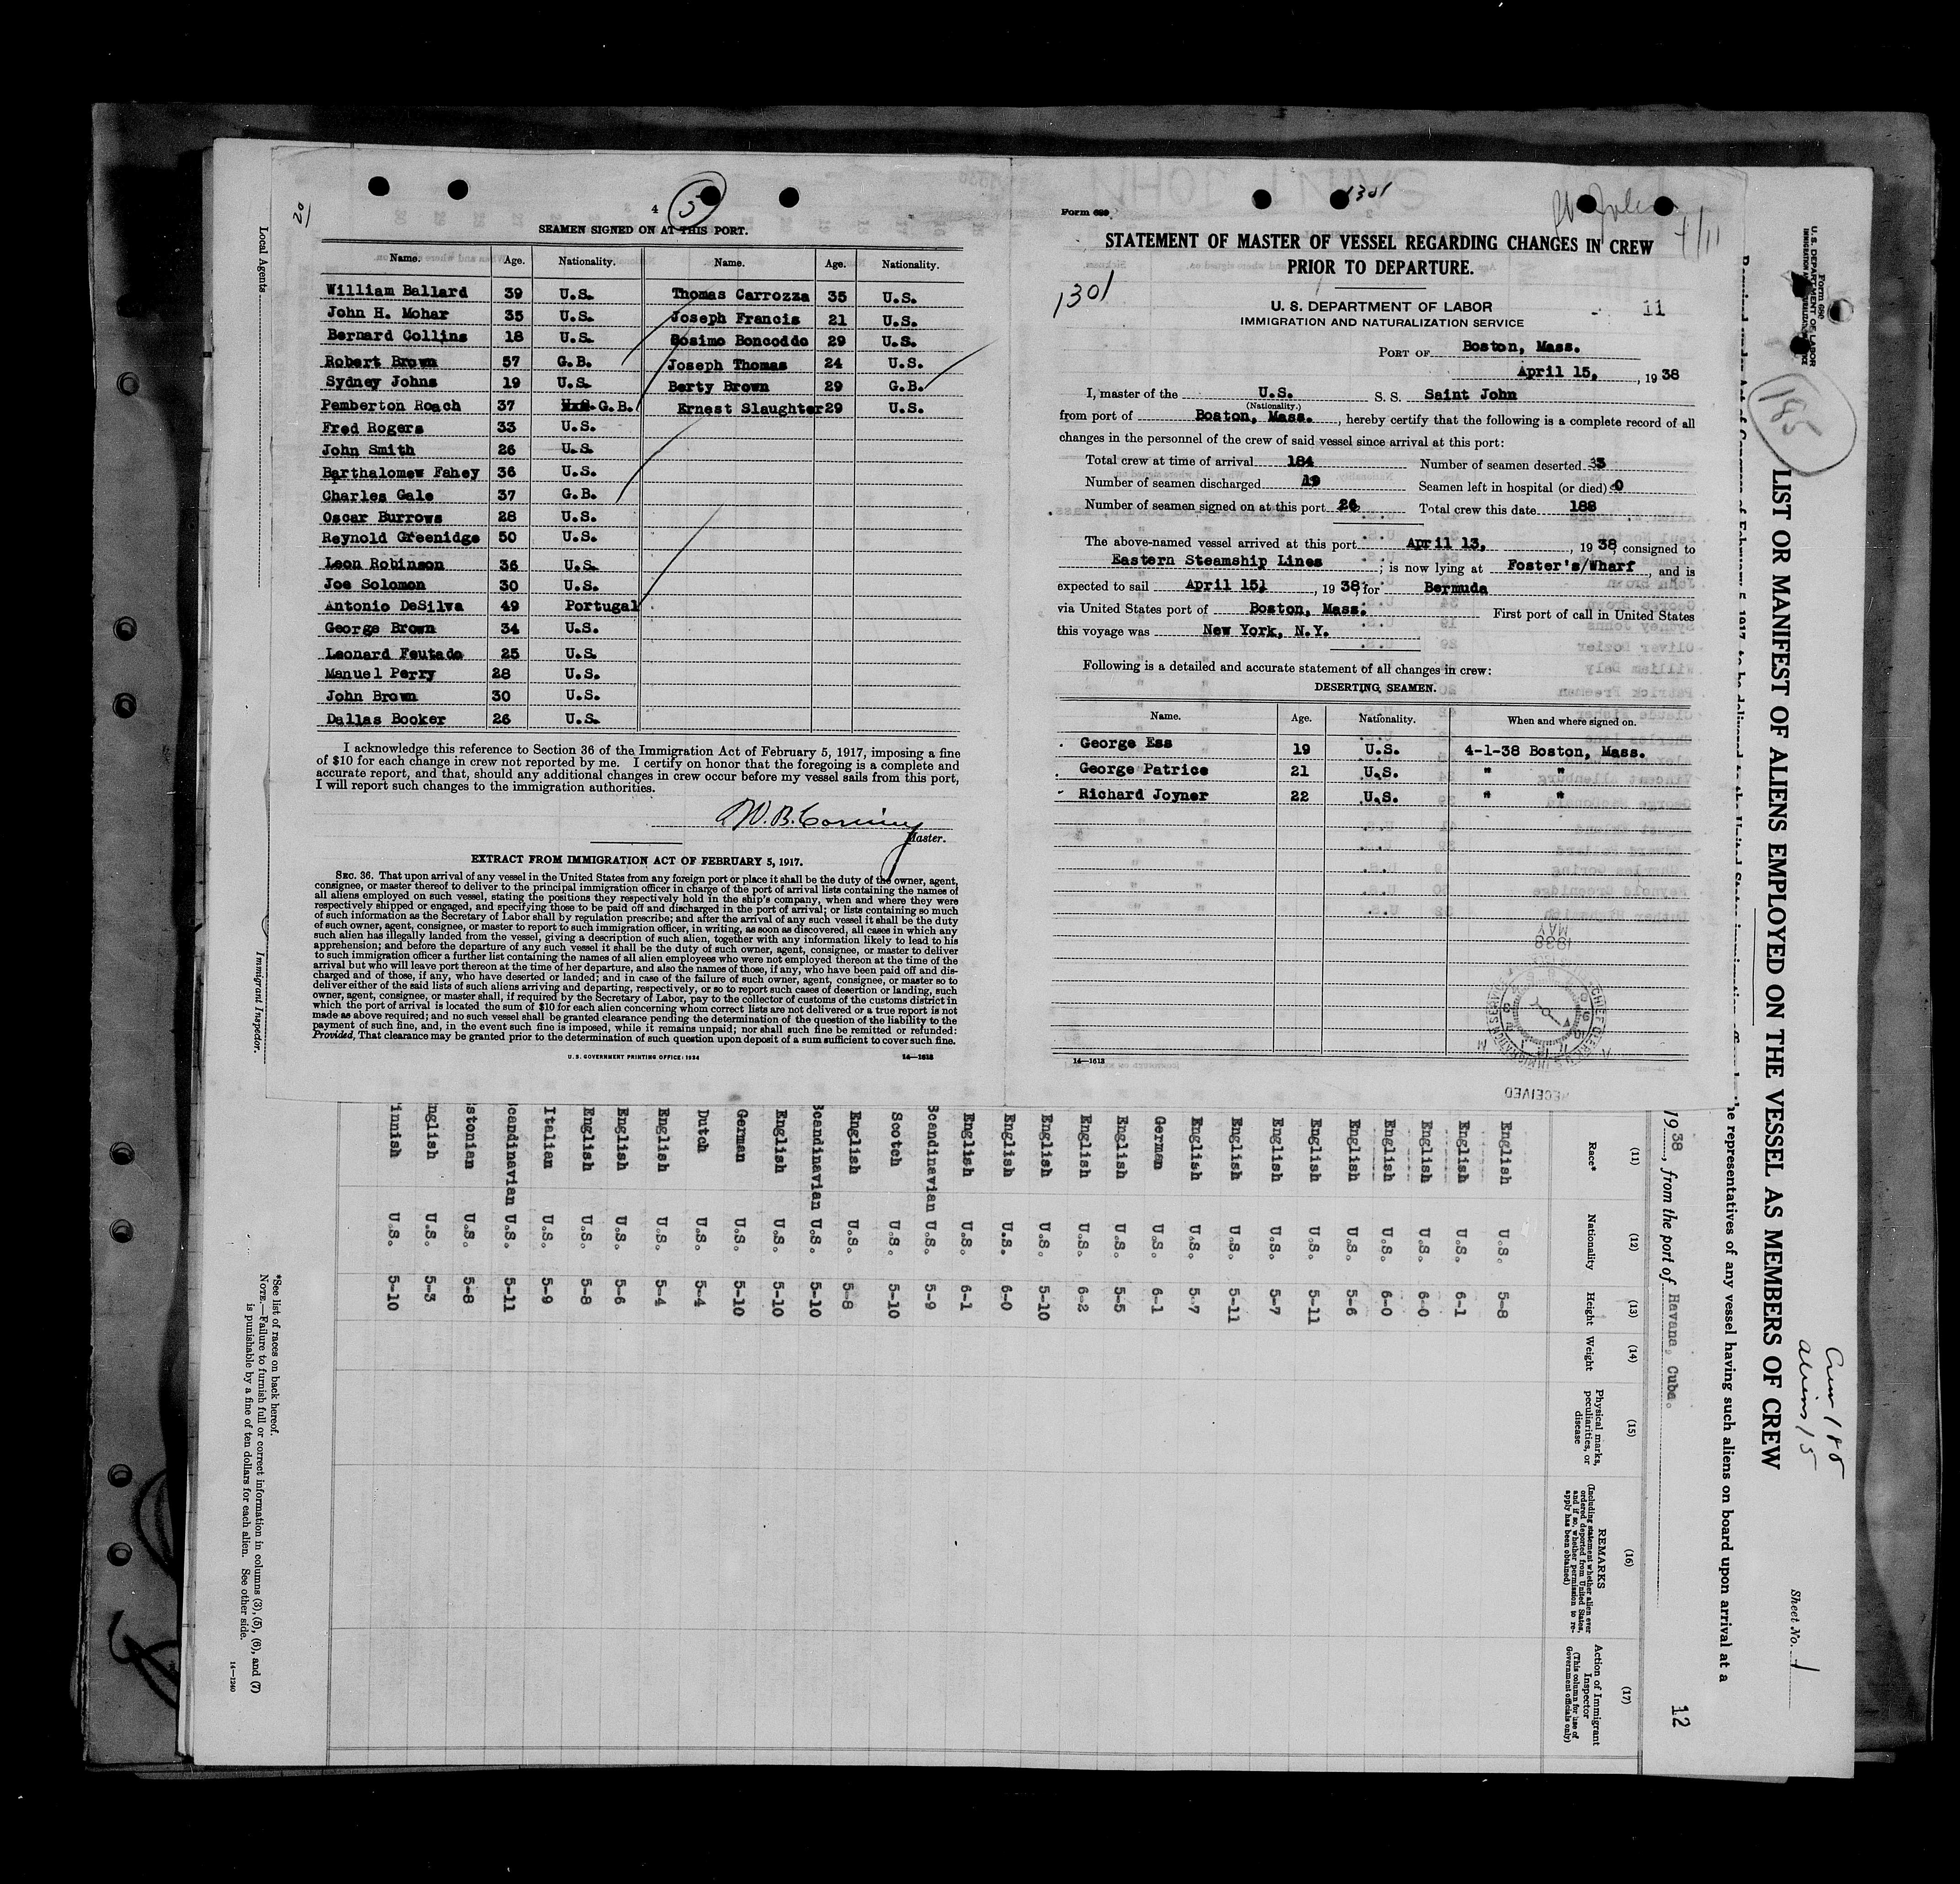 20/
4
5
SEAMEN SIGNED ON AT THIS PORT.
Name. Age. Nationality. Name. Age. Nationality.
William Ballard 39 U.S. Thomas Carrozza 35 U.S.
John H. Mohar 35 U.S. Joseph Francis 21 U.S.
Bernard Collins 18 U.S. Cosimo Boncoddo 29 U.S.
Robert Brown 57 G.B. Joseph Thomas 24 U.S.
Sydney Johns 19 U.S. Berty Brown 29 G.B.
Pemberton Roach 37 G.B. Ernest Slaughter 29 U.S.
Fred Rogers 33 U.S.
John Smith 26 U.S.
Barthalomew Fahey 36 U.S.
Charles Gale 37 G.B.
Oscar Burrows 28 U.S.
Reynold Greenidge 50 U.S.
Leon Robinson 36 U.S.
Joe Solomon 30 U.S.
Antonio DeSilva 49 Portugal
George Brown 34 U.S.
Leonard Feutado 25 U.S.
Manuel Perry 28 U.S.
John Brown 30 U.S.
Dallas Booker 26 U.S.
I acknowledge this reference to Section 36 of the Immigration Act of February 5, 1917, imposing a fine
of $10 for each change in crew not reported by me. I certify on honor that the foregoing is a complete and
accurate report, and that, should any additional changes in crew occur before my vessel sails from this port,
I will report such changes to the immigration authorities.
Master.
EXTRACT FROM IMMIGRATION ACT OF FEBRUARY 5, 1917.
SEC. 36. That upon arrival of any vessel in the United States from any foreign port or place it shall be the duty of the owner, agent,
consignee, or master thereof to deliver to the principal immigration officer in charge of the port of arrival lists containing the names of
all aliens employed on such vessel, stating the positions they respectively hold in the ship's company, when and where they were
respectively shipped or engaged, and specifying those to be paid off and discharged in the port of arrival; or lists containing so much
of such information as the Secretary of Labor shall by regulation prescribe; and after the arrival of any such vessel it shall be the duty
of such owner, agent, consignee, or master to report to such immigration officer, in writing, as soon as discovered, all cases in which any
such alien has illegally landed from the vessel, giving a description of such alien, together with any information likely to lead to his
apprehension; and before the departure of any such vessel it shall be the duty of such owner, agent, consignee, or master to deliver
to such immigration officer a further list containing the names of all alien employees who were not employed thereon at the time of the
arrival but who will leave port thereon at the time of her departure, and also the names of those, if any, who have been paid off and dis-
charged and of those, if any, who have deserted or landed; and in case of the failure of such owner, agent, consignee, or master so to
deliver either of the said lists of such aliens arriving and departing, respectively, or so to report such cases of desertion or landing, such
owner, agent, consignee, or master shall, if required by the Secretary of Labor, pay to the collector of customs of the customs district in
which the port of arrival is located the sum of $10 for each alien concerning whom correct lists are not delivered or a true report is not
made as above required; and no such vessel shall be granted clearance pending the determination of the question of the liability to the
payment of such fine, and, in the event such fine is imposed, while it remains unpaid; nor shall such fine be remitted or refunded:
Provided, That clearance may be granted prior to the determination of such question upon deposit of a sum sufficient to cover such fine.
U. S. GOVERNMENT PRINTING OFFICE: 1934 14—1613
1301
Form 689
STATEMENT OF MASTER OF VESSEL REGARDING CHANGES IN CREW
PRIOR TO DEPARTURE.
1301
U. S. DEPARTMENT OF LABOR
IMMIGRATION AND NATURALIZATION SERVICE
11
PORT OF Boston, Mass.
April 15, , 1938
I, master of the U.S. S. S. Saint John
(Nationality.)
from port of Boston, Mass. , hereby certify that the following is a complete record of all
changes in the personnel of the crew of said vessel since arrival at this port:
Total crew at time of arrival 184 Number of seamen deserted 3
Number of seamen discharged 19 Seamen left in hospital (or died) 0
Number of seamen signed on at this port 26 Total crew this date 188
The above-named vessel arrived at this port April 13, , 1938, consigned to
Eastern Steamship Lines ; is now lying at Foster's/Wharf , and is
expected to sail April 15, , 1938 for Bermuda
via United States port of Boston, Mass. First port of call in United States
this voyage was New York, N.Y.
Following is a detailed and accurate statement of all changes in crew:
DESERTING SEAMEN.
Name. Age. Nationality. When and where signed on.
George Ess 19 U.S. 4-1-38 Boston, Mass.
George Patrice 21 U.S. " "
Richard Joyner 22 U.S. " "
14—1613
RECEIVED
Form 680
U. S. DEPARTMENT OF LABOR
185
LIST OR MANIFEST OF ALIENS EMPLOYED ON THE VESSEL AS MEMBERS OF CREW
Crew 188
aliens 15
Sheet No. 1
the representatives of any vessel having such aliens on board upon arrival at a
1938, from the port of Havana, Cuba.
12
(11) (12) (13) (14) (15) (16) (17)
Race* Nationality Height Weight Physical marks, peculiarities, or disease
REMARKS
(Including statement whether alien ever ordered deported from United States, and if so, whether permission to reapply has been obtained)
Action of Immigrant Inspector
(This column for use of Government officials only)
English U.S. 5-8
English U.S. 6-1
English U.S. 6-0
English U.S. 6-0
English U.S. 5-6
English U.S. 5-11
English U.S. 5-7
English U.S. 5-11
English U.S. 5-7
German U.S. 6-1
English U.S. 5-5
English U.S. 6-2
English U.S. 5-10
English U.S. 6-0
English U.S. 6-1
Scandinavian U.S. 5-9
Scotch U.S. 5-10
English U.S. 5-8
Scandinavian U.S. 5-10
English U.S. 5-10
German U.S. 5-10
Dutch U.S. 5-4
English U.S. 5-4
English U.S. 5-6
English U.S. 5-8
Italian U.S. 5-9
Scandinavian U.S. 5-11
stonian U.S. 5-8
nglish U.S. 5-3
innish U.S. 5-10
Local Agents
Immigrant Inspector.
*See list of races on back hereof.
NOTE.—Failure to furnish full or correct information in columns (3), (5), (6), and (7)
is punishable by a fine of ten dollars for each alien. See other side.
14—1240